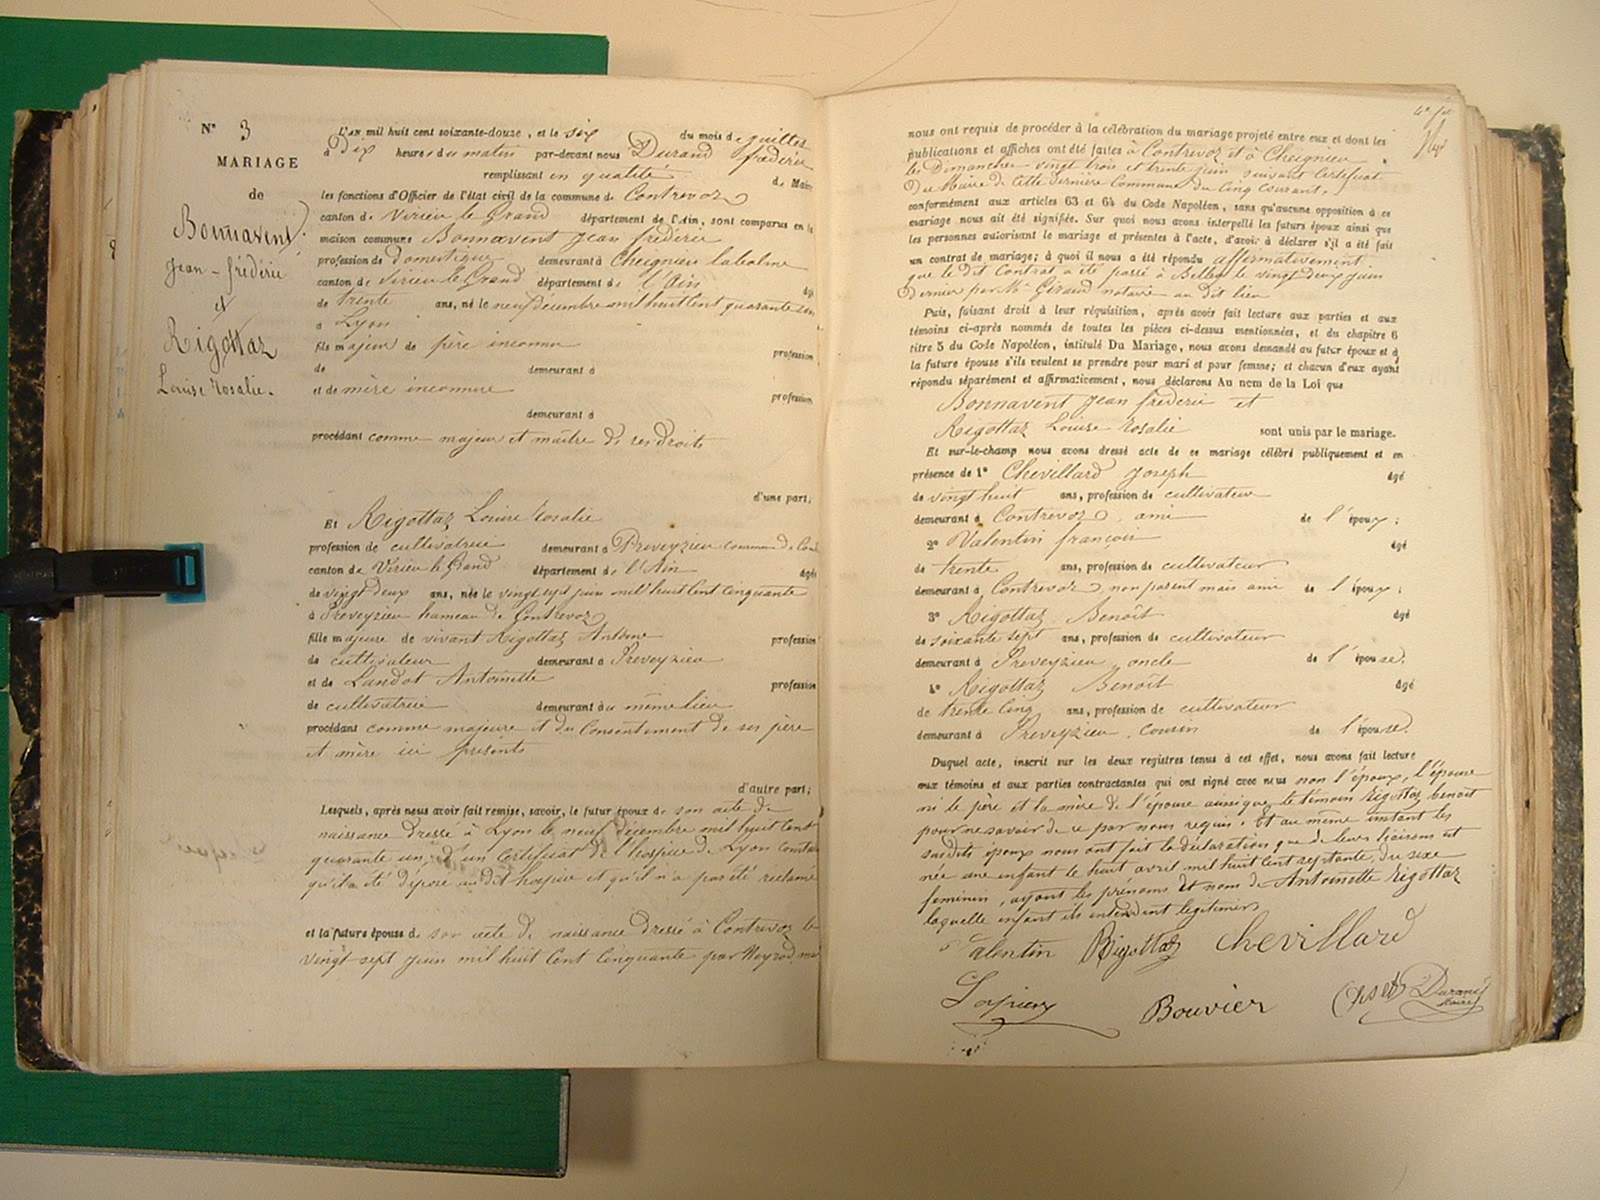 N° 3
MARIAGE
de
Bonnavent
Jean-frédéric
et
Rigottaz
Louise Rosalie.
L'AN mil huit cent soixante-douze, et le six du mois de juillet
à Dix heures du matin par-devant nous Durand frédéric
remplissant en qualité de Maire
les fonctions d'Officier de l'état civil de la commune de Contrevoz
canton de Virieu le Grand département de l'Ain, sont comparus en la
maison commune Bonnavent Jean frédéric
profession de domestique demeurant à Cheignieu labalme
canton de Virieu le Grand département de l'Ain âgé
de trente ans, né le neuf décembre mil huit cent quarante un
à Lyon
fils majeur de père inconnu profession
de demeurant à
et de mère inconnue profession
demeurant à
procédant comme majeur et maître de ses droits
d'une part;
Et Rigottaz Louise Rosalie
profession de cultivatrice demeurant à Preveyzieu commune de
canton de Virieu le Grand département de l'Ain âgée
de vingt deux ans, née le vingt sept juin mil huit cent cinquante
à Preveyzieu hameau de Contrevoz
fille majeure de vivant Rigottaz Antoine profession
de cultivateur demeurant à Preveyzieu
et de Landot Antoinette profession
de cultivatrice demeurant au même lieu
procédant comme majeure et du Consentement de ses père
et mère ici présents
d'autre part;
Lesquels, après nous avoir fait remise, savoir, le futur époux de son acte de
naissance dressé à Lyon le neuf décembre mil huit cent
quarante un, d'un Certificat de l'hospice de Lyon
qu'il a été déposé audit hospice et qu'il n'a pas été réclamé
et la future épouse de son acte de naissance dressé à Contrevoz le
vingt sept juin mil huit Cent Cinquante par
nous ont requis de procéder à la célébration du mariage projeté entre eux et dont les
publications et affiches ont été faites à Contrevoz et à Cheignieu
les Dimanches vingt trois et trente juin suivant Certificat
Du Maire de Cette dernière Commune du Cinq Courant,
conformément aux articles 63 et 64 du Code Napoléon, sans qu'aucune opposition à ce
mariage nous ait été signifiée. Sur quoi nous avons interpellé les futurs époux ainsi que
les personnes autorisant le mariage et présentes à l'acte, d'avoir à déclarer s'il a été fait
un contrat de mariage; à quoi il nous a été répondu affirmativement
que le dit Contrat a été passé à Belley le vingt Deux juin
Dernier par Me Giraud notaire au dit lieu
Puis, faisant droit à leur réquisition, après avoir fait lecture aux parties et aux
témoins ci-après nommés de toutes les pièces ci-dessus mentionnées, et du chapitre 6
titre 5 du Code Napoléon, intitulé Du Mariage, nous avons demandé au futur époux et à
la future épouse s'ils veulent se prendre pour mari et pour femme; et chacun d'eux ayant
répondu séparément et affirmativement, nous déclarons Au nom de la Loi que
Bonnavent Jean frédéric et
Rigottaz Louise Rosalie sont unis par le mariage.
Et sur-le-champ nous avons dressé acte de ce mariage célébré publiquement et en
présence de 1° Chevillard Joseph âgé
de vingt huit ans, profession de cultivateur
demeurant à Contrevoz, ami de l'époux;
2° Valentin françois âgé
de trente ans, profession de cultivateur
demeurant à Contrevoz, non parent mais ami de l'époux;
3° Rigottaz Benoît âgé
de soixante sept ans, profession de cultivateur
demeurant à Preveyzieu, oncle de l'épouse.
4° Rigottaz Benoît âgé
de trente Cinq ans, profession de cultivateur
demeurant à Preveyzieu, cousin de l'épouse.
Duquel acte, inscrit sur les deux registres tenus à cet effet, nous avons fait lecture
aux témoins et aux parties contractantes qui ont signé avec nous non l'époux, l'épouse
ni le père et la mère de l'épouse ainsi que le témoin Rigottaz benoit
pour ne savoir de ce par nous requis. Et au même instant les
susdits époux nous ont fait la déclaration que de leurs liaisons est
née une enfant le huit avril mil huit Cent septante, du sexe
féminin, ayant les prénoms et nom de Antoinette Rigottaz
laquelle enfant ils entendent légitimer
Valentin Rigottaz Chevillard
Bouvier Durand
Maire